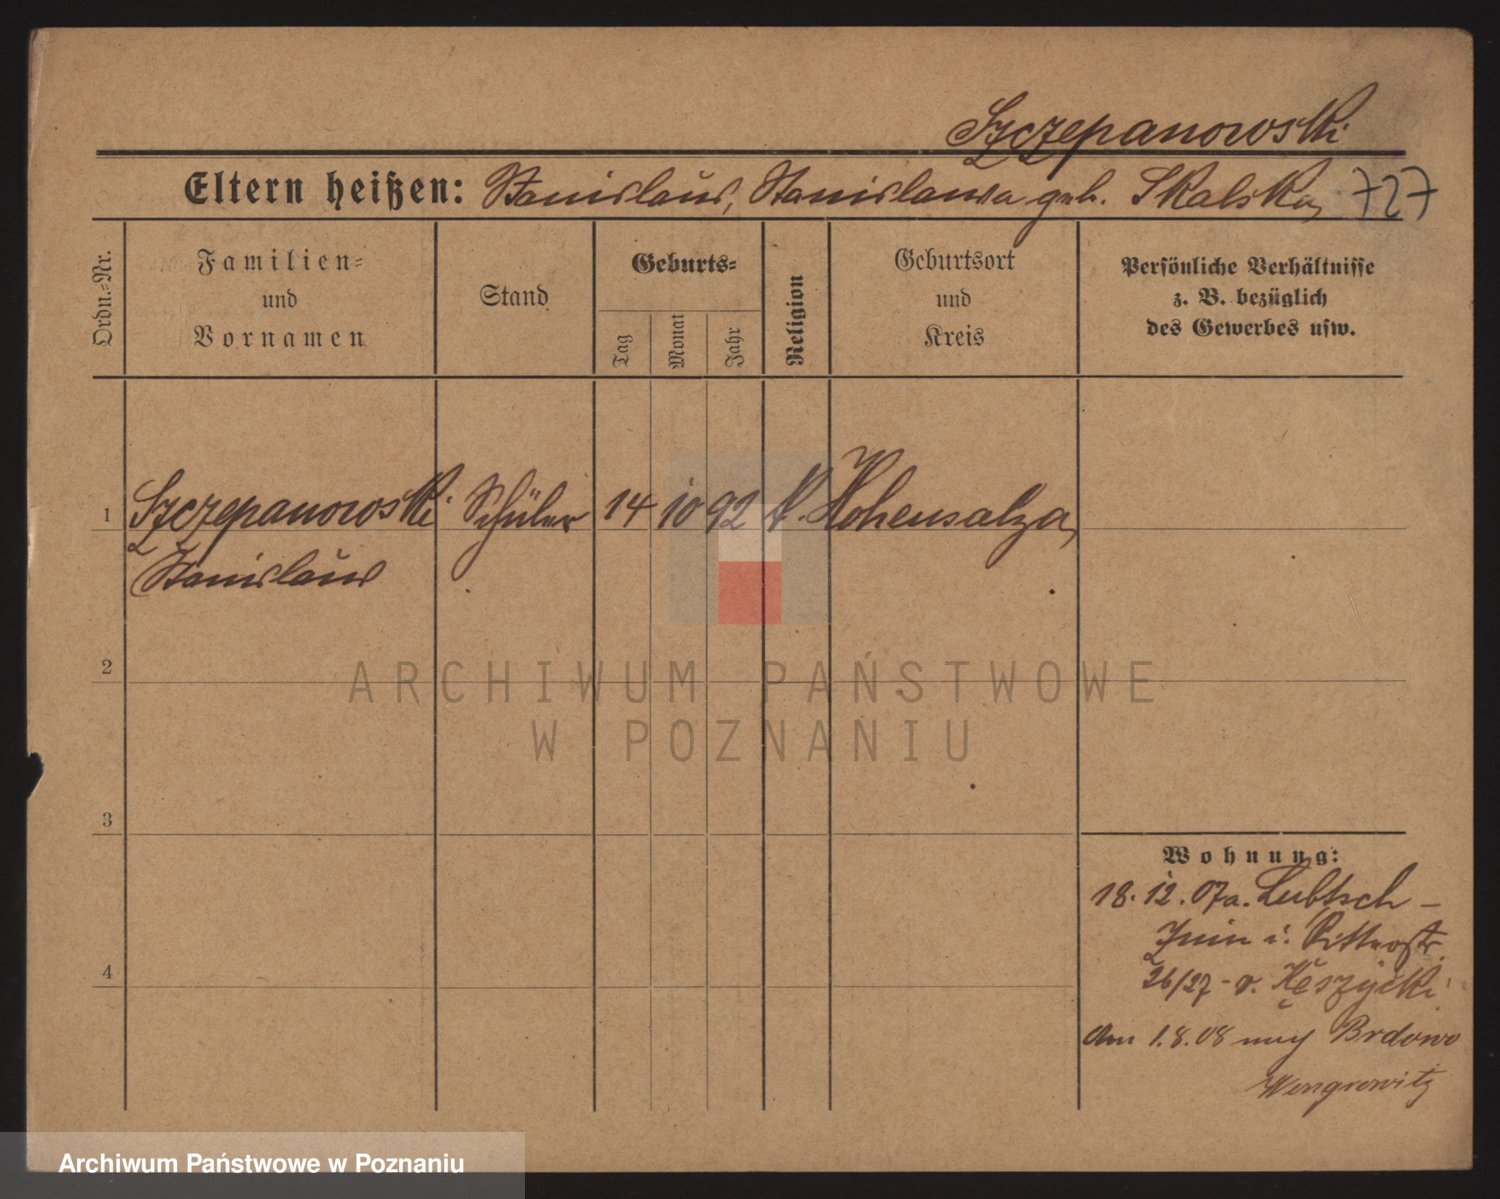 Szczepanowski
Eltern heißen: Stanislaus, Stanislawa geb. Skalska, 727
Ordn.-Nr.
Familien-
und
Vornamen
Stand
Geburts-
Tag
Monat
Jahr
Religion
Geburtsort
und
Kreis
Persönliche Verhältnisse
z. B. bezüglich
des Gewerbes usw.
1 Szczepanowski Schüler 14 10 92 k. Hohensalza,
Stanislaus
2
3
4
Wohnung:
18.12.07 a. Lubtsch -
Znin i. Ritterstr.
26/27 - v. Kęszycki
Am 1.8.08 nach Brdowo
Wongrowitz
ARCHIWUM PAŃSTWOWE
W POZNANIU
Archiwum Państwowe w Poznaniu